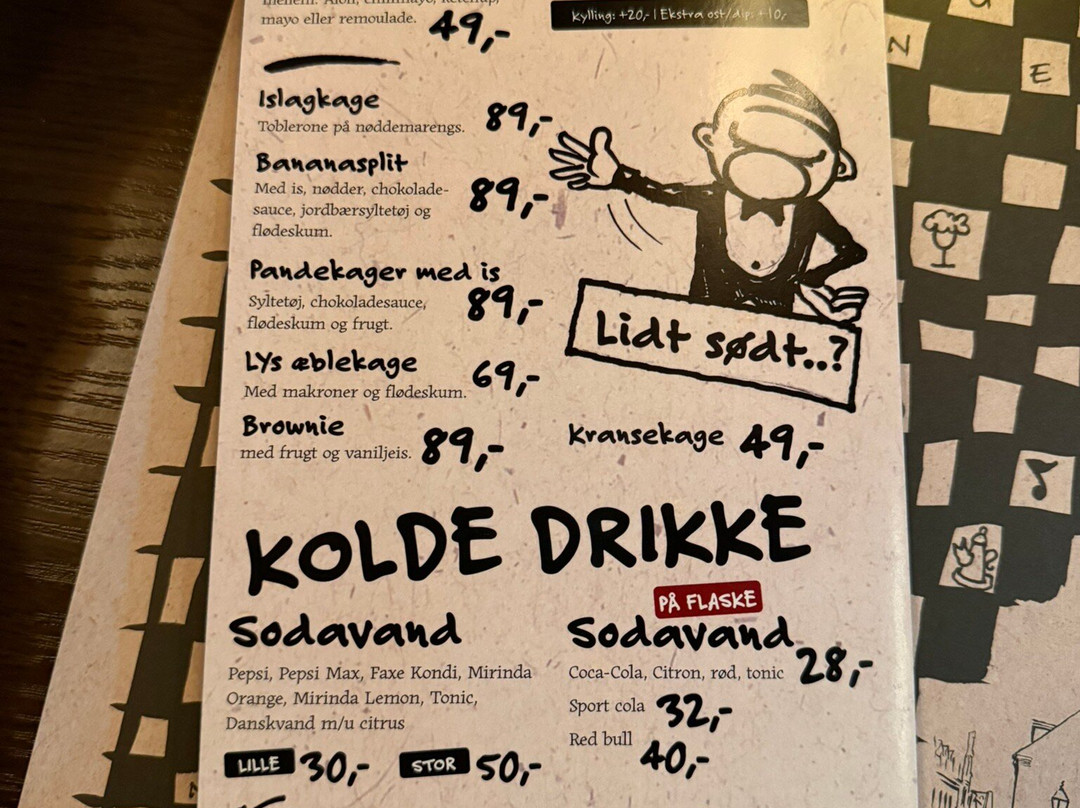 mayo eller remoulade.
49,-
Kylling: +20,- | Ekstra ost/dip: +10,-
Islagkage
Toblerone på nøddemarengs.
89,-
Bananasplit
Med is, nødder, chokolade-
sauce, jordbærsyltetøj og
flødeskum.
89,-
Pandekager med is
Syltetøj, chokoladesauce,
flødeskum og frugt.
89,-
LYs æblekage
Med makroner og flødeskum.
69,-
Brownie
med frugt og vaniljeis.
89,-
Lidt sødt..?
Kransekage 49,-
KOLDE DRIKKE
Sodavand
Pepsi, Pepsi Max, Faxe Kondi, Mirinda
Orange, Mirinda Lemon, Tonic,
Danskvand m/u citrus
LILLE 30,- STOR 50,-
PÅ FLASKE
Sodavand
Coca-Cola, Citron, rød, tonic 28,-
Sport cola 32,-
Red bull
40,-
N
E